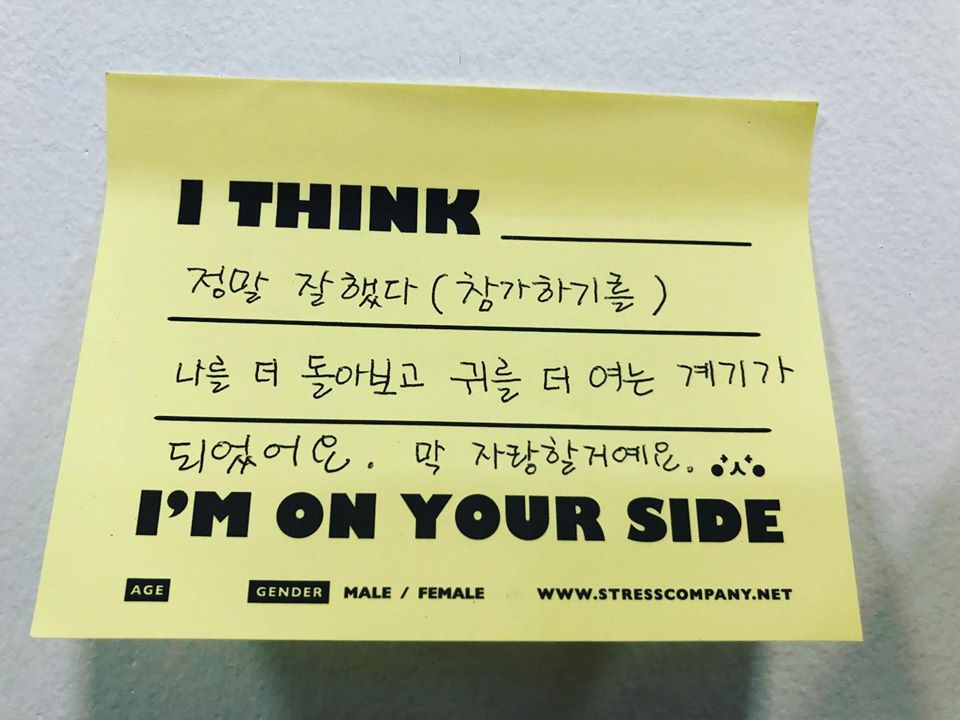 I THINK
정말 잘했다 (참가하기를)
나를 더 돌아보고 귀를 더 여는 계기가
되었어요. 막 자랑할거예요.
I'M ON YOUR SIDE
AGE GENDER MALE / FEMALE WWW.STRESSCOMPANY.NET